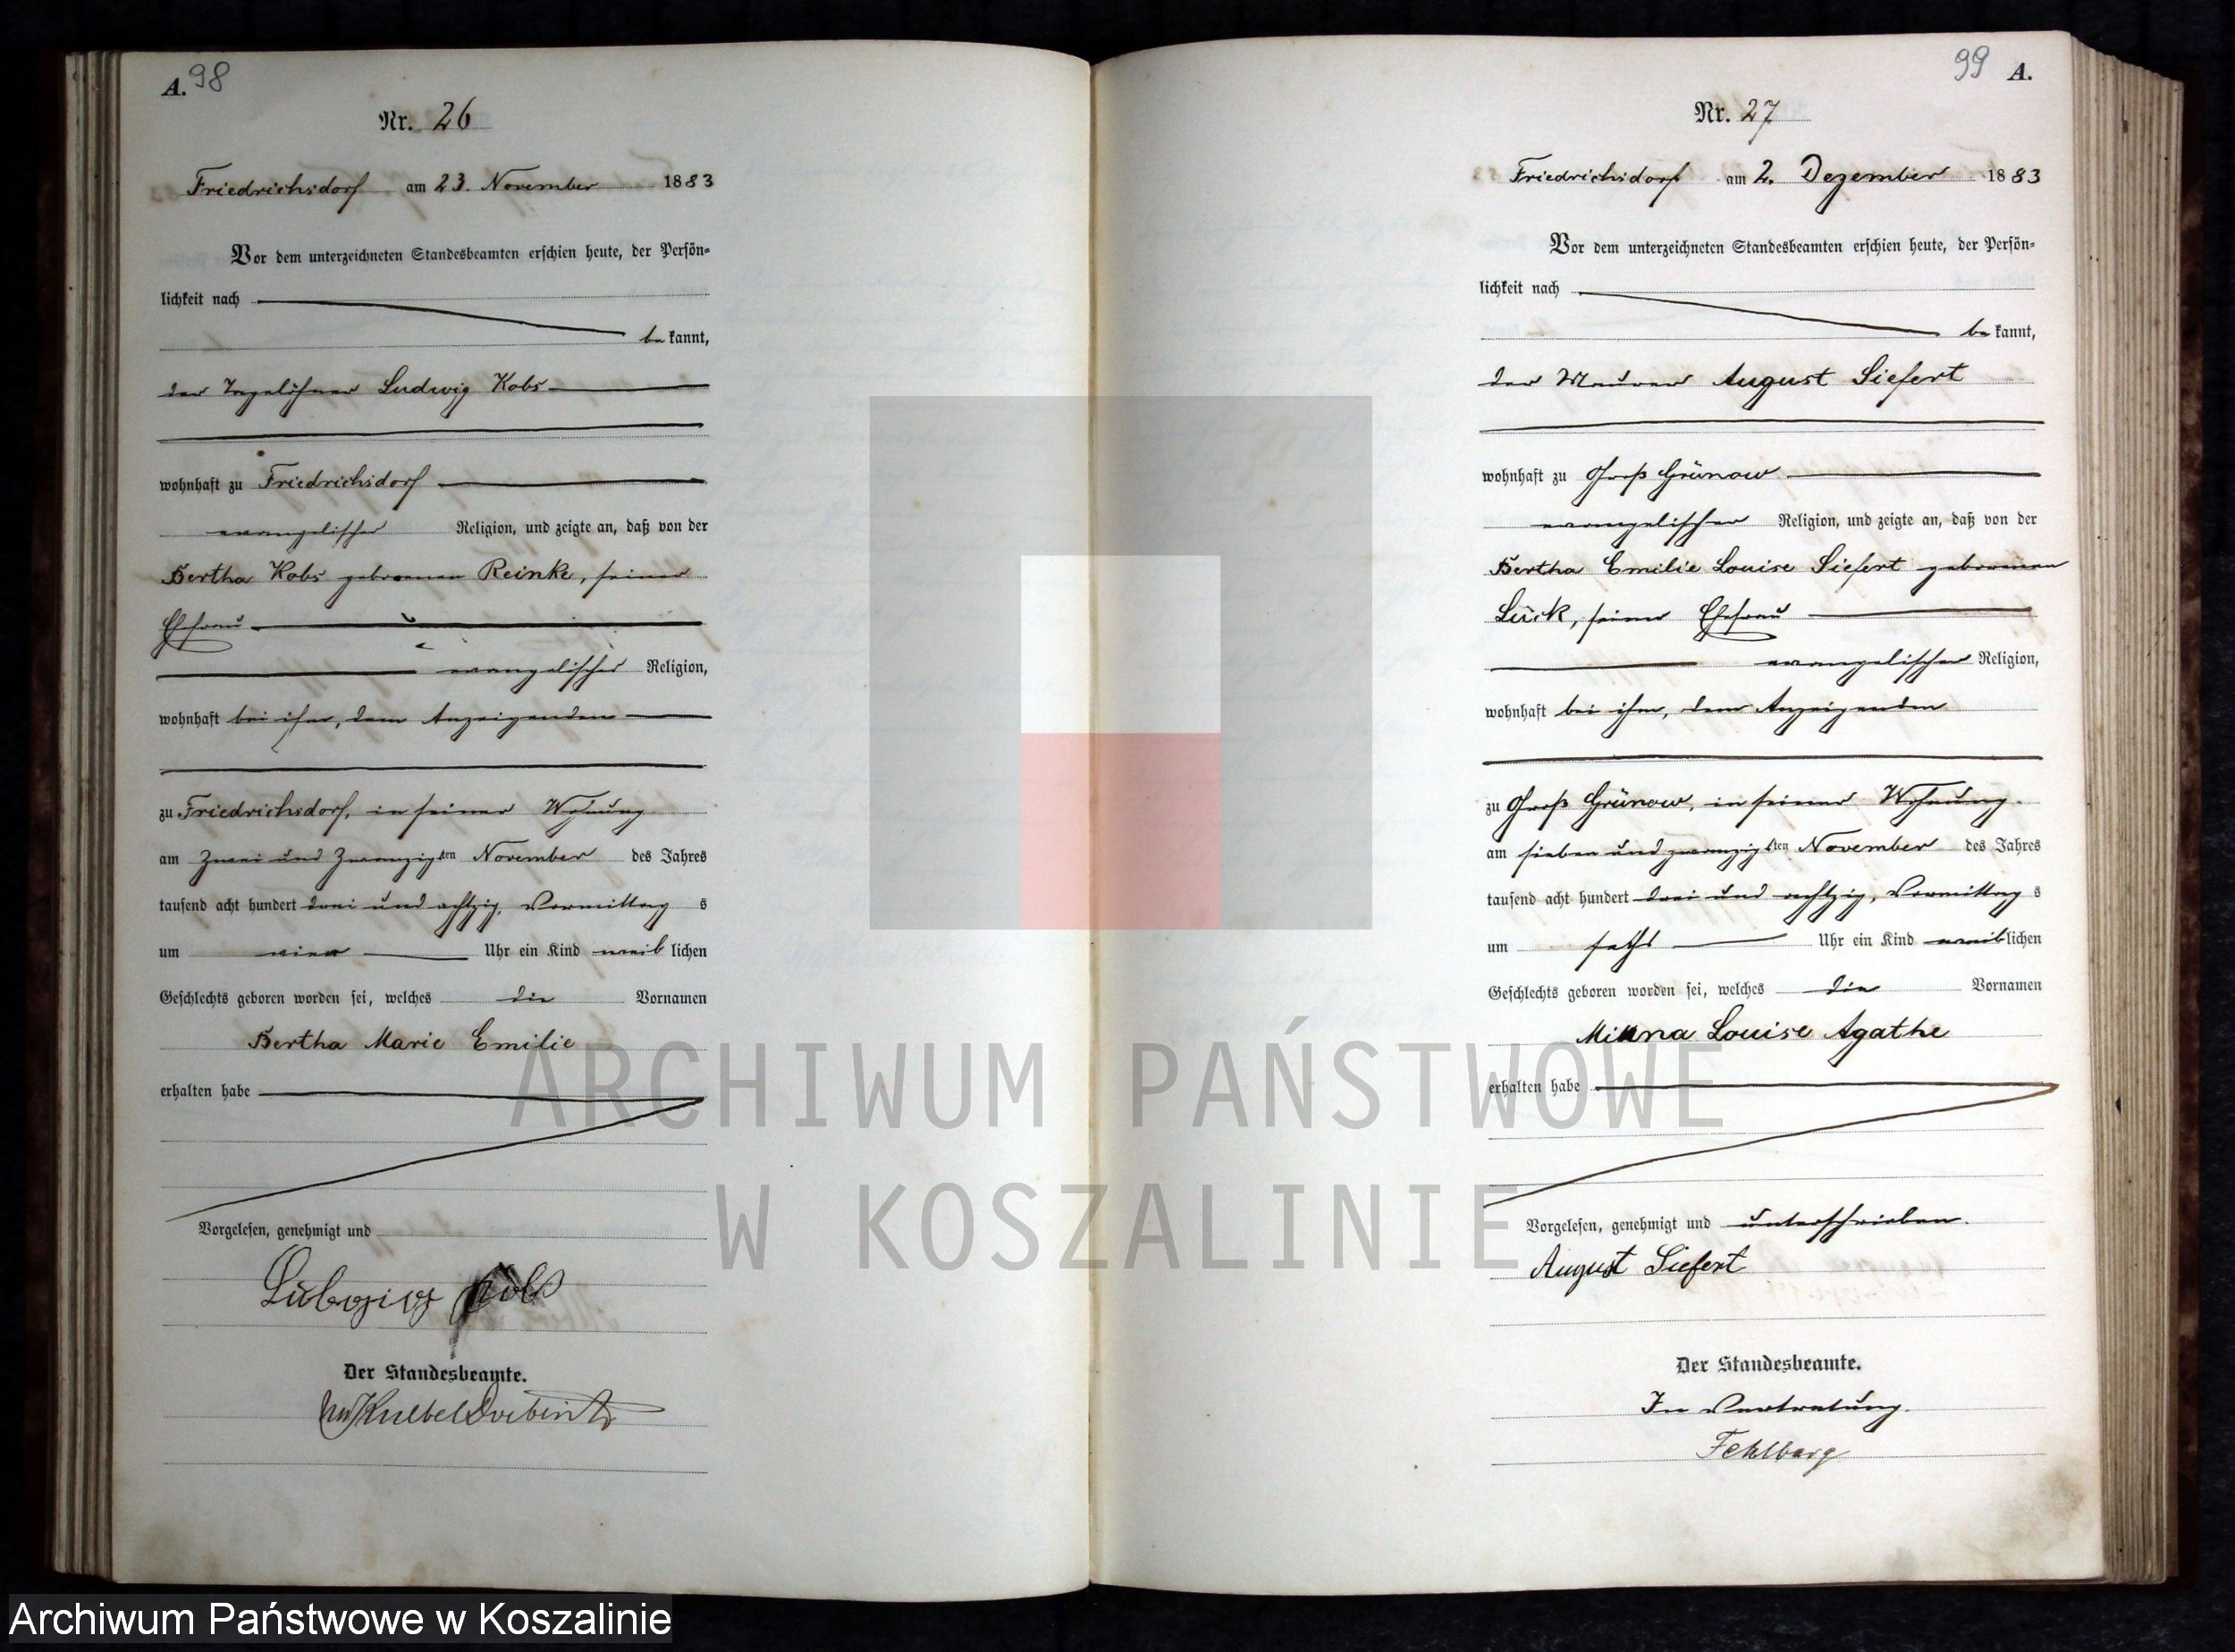 A. 98
Nr. 26
Friedrichsdorf am 23. November 1883
Vor dem unterzeichneten Standesbeamten erschien heute, der Persön-
lichkeit nach
be kannt,
der Tagelöhner Ludwig Kobs
wohnhaft zu Friedrichsdorf
evangelischer Religion, und zeigte an, daß von der
Bertha Kobs geborenen Reinke, seiner
Ehefrau
evangelischer Religion,
wohnhaft bei ihm, dem Anzeigenden
zu Friedrichsdorf, in seiner Wohnung
am zwei und zwanzigsten November des Jahres
tausend acht hundert drei und achtzig, Vormittag s
um vier Uhr ein Kind weib lichen
Geschlechts geboren worden sei, welches die Vornamen
Bertha Marie Emilie
erhalten habe
Vorgelesen, genehmigt und
Ludwig Kobs
Der Standesbeamte.
99 A.
Nr. 27
Friedrichsdorf am 2. Dezember 1883
Vor dem unterzeichneten Standesbeamten erschien heute, der Persön-
lichkeit nach
be kannt,
der Maurer August Siefert
wohnhaft zu Groß Grünow
evangelischer Religion, und zeigte an, daß von der
Bertha Emilie Louise Siefert geborenen
Lück, seiner Ehefrau
evangelischer Religion,
wohnhaft bei ihm, dem Anzeigenden
zu Groß Grünow, in seiner Wohnung.
am sieben und zwanzigsten November des Jahres
tausend acht hundert drei und achtzig, Vormittag s
um sechs Uhr ein Kind weiblichen
Geschlechts geboren worden sei, welches die Vornamen
Minna Louise Agathe
erhalten habe
Vorgelesen, genehmigt und unterschrieben.
August Siefert
Der Standesbeamte.
In Vertretung.
Fehlberg
ARCHIWUM PAŃSTWOWE
W KOSZALINIE
Archiwum Państwowe w Koszalinie